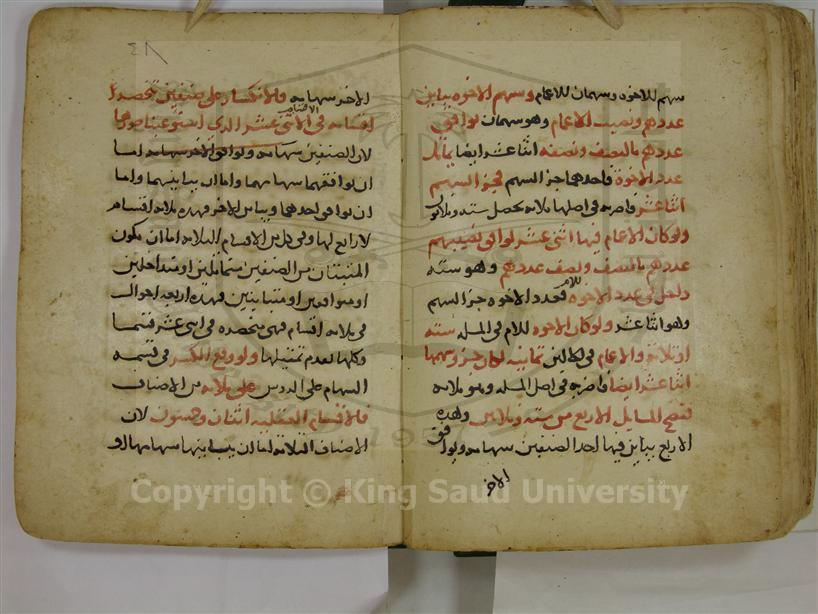 سهم للاخوه وسهمان للاعمام وسهم الاخوه يباين
عددهم ونصيب الاعمام وهو سهمان توافق
عددهم بالنصف ونصفه اثنا عشر ايضا يماثل
عدد الاخوة فاحدهما جزء السهم فجزء السهم
اثنا عشر فاضربه في اصلها ثلاثه يحصل سته وثلاثون
ولو كان الاعمام فيها اثني عشر لوافق نصيبهم
عددهم بالنصف ونصف عددهم وهو سته
داخل في عدد الاخوه فعدد الاخوه جزء السهم
وهو اثنا عشر ولو كان الاخوه للام في المسله سته
او ثلاثة والاعمام في الحالين ثمانيه لكان جزء سهمها
اثنا عشر ايضا فاضربه في اصل المسله وهو ثلاثه
فتصح المسايل الاربع من سته وثلاثين وهذه
الاربع يباين فيها احد الصنفين سهامه ويوافق
الاخر
٤٨
الاخر سهامه فالانكسار على صنفين تنحصر
اقسامه في الاثني عشر الذي
لان الصنفين سهامه ويوافق الاخر سهامه اما
ان يوافقهما سهامهما واما ان يباينهما واما
ان يوافق احدهما ويباين الاخر فهذه ثلاثه اقسام
لا رابع لها وفي كل من الاقسام الثلاثه اما ان يكون
المثبتان من الصنفين متماثلين او متداخلين
او متوافقين او متباينين فهذه اربعه احوال
في ثلاثه اقسام فهي منحصره في اثني عشر قسما
وكلها تقدم تمثيلها ولو وقع الكسر في قسمه
السهام على الروس على ثلاثه من الاصناف
فالاقسام العقليه اثنان وخمسون لان
الاصناف الثلاثه اما ان يباينها سهامها او
Copyright © King Saud University